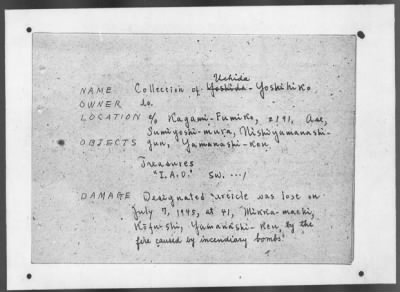 Uchida
NAME Collection of Yoshida - Yoshihiko
OWNER do.
LOCATION c/o Kagami-Fumiko, 2191, Ase,
Sumiyoshi-mura, Nishiyamanashi-
OBJECTS gun, Yamanashi-ken
Treasures
"I.A.O." SW. ---1
DAMAGE Designated article was lose on
July 7, 1945, at 41, Mikka-machi,
Kōfu-shi, Yamanashi-Ken, by the
fire caused by incendiary bombs.